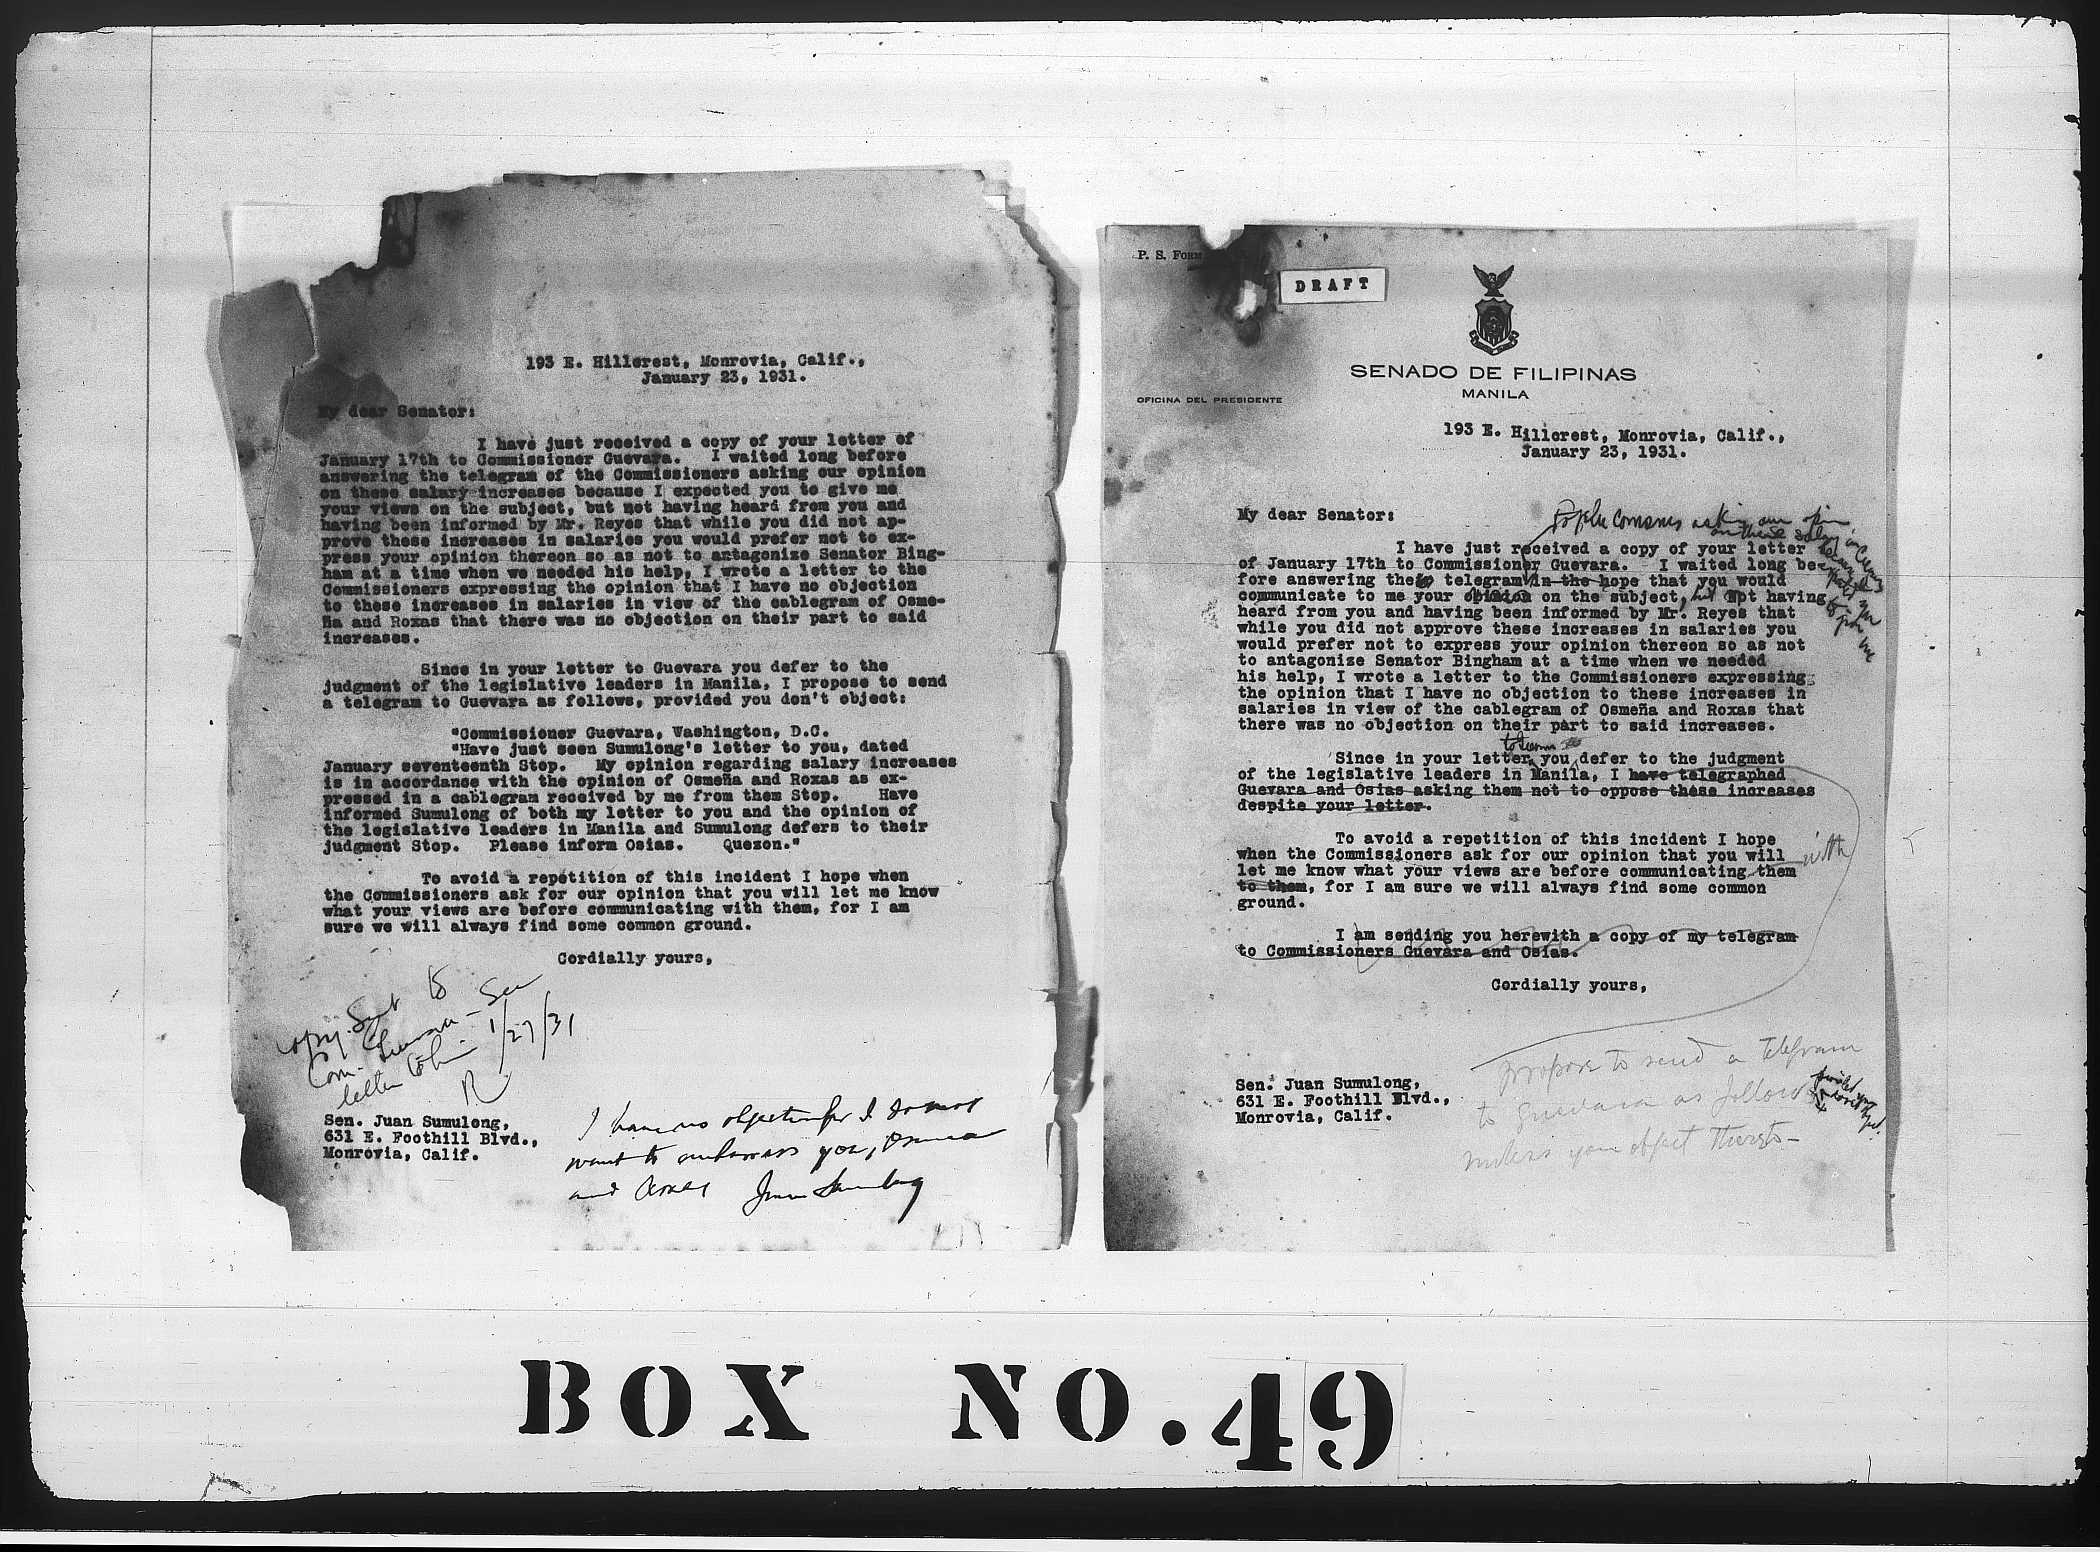 193 E. Hillcrest, Monrovia, Calif.,
January 23, 1931.
My dear Senator:
I have just received a copy of your letter of
January 17th to Commissioner Guevara. I waited long before
answering the telegram of the Commissioners asking our opinion
on these salary increases because I expected you to give me
your views on the subject, but not having heard from you and
having been informed by Mr. Reyes that while you did not ap-
prove these increases in salaries you would prefer not to ex-
press your opinion thereon so as not to antagonize Senator Bing-
ham at a time when we needed his help, I wrote a letter to the
Commissioners expressing the opinion that I have no objection
to these increases in salaries in view of the cablegram of Osme-
ña and Roxas that there was no objection on their part to said
increases.
Since in your letter to Guevara you defer to the
judgment of the legislative leaders in Manila, I propose to send
a telegram to Guevara as follows, provided you don't object:
"Commissioner Guevara, Washington, D.C.
"Have just seen Sumulong's letter to you, dated
January seventeenth Stop. My opinion regarding salary increases
is in accordance with the opinion of Osmeña and Roxas as ex-
pressed in a cablegram received by me from them Stop. Have
informed Sumulong of both my letter to you and the opinion of
the legislative leaders in Manila and Sumulong defers to their
judgment Stop. Please inform Osias. Quezon."
To avoid a repetition of this incident I hope when
the Commissioners ask for our opinion that you will let me know
what your views are before communicating with them, for I am
sure we will always find some common ground.
Cordially yours,
Copy Sent to
Com. Guevara - See
letter to him 1/27/31
R
Sen. Juan Sumulong,
631 E. Foothill Blvd.,
Monrovia, Calif.
I have no objection for I do not
want to embarrass you, Osmena
and Roxas Juan Sumulong
P. S. FORM
DRAFT
SENADO DE FILIPINAS
MANILA
OFICINA DEL PRESIDENTE
193 E. Hillcrest, Monrovia, Calif.,
January 23, 1931.
My dear Senator:
of the Comsners asking our opin
on these salary increases
because I
expected you
to give me
I have just received a copy of your letter
of January 17th to Commissioner Guevara. I waited long be-
fore answering the telegram in the hope that you would
communicate to me your opinion on the subject, but not having
heard from you and having been informed by Mr. Reyes that
while you did not approve these increases in salaries you
would prefer not to express your opinion thereon so as not
to antagonize Senator Bingham at a time when we needed
his help, I wrote a letter to the Commissioners expressing
the opinion that I have no objection to these increases in
salaries in view of the cablegram of Osmeña and Roxas that
there was no objection on their part to said increases.
to Guevara
Since in your letter you defer to the judgment
of the legislative leaders in Manila, I have telegraphed
Guevara and Osias asking them not to oppose these increases
despite your letter.
To avoid a repetition of this incident I hope
when the Commissioners ask for our opinion that you will
let me know what your views are before communicating them
with
to them, for I am sure we will always find some common
ground.
I am sending you herewith a copy of my telegram
to Commissioners Guevara and Osias.
Cordially yours,
propose to send a telegram
to Guevara as follows
unless you object thereto-
provided you
don't object
Sen. Juan Sumulong,
631 E. Foothill Blvd.,
Monrovia, Calif.
BOX NO. 49